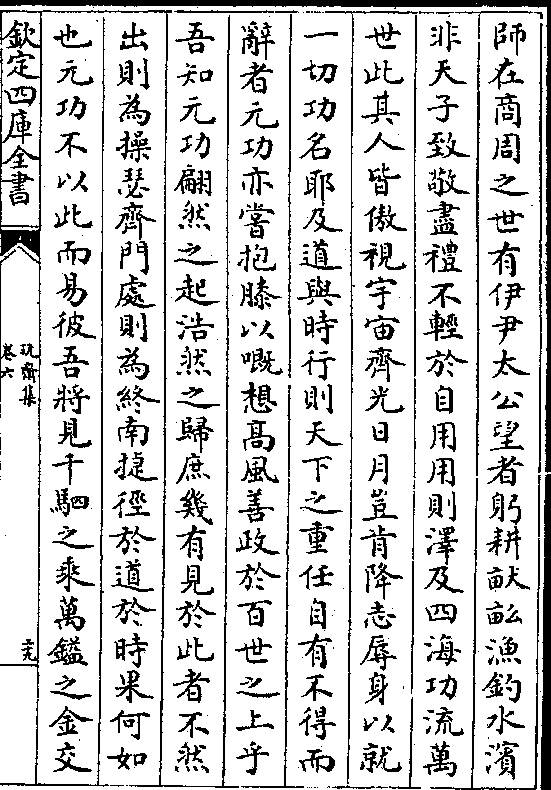 師在商周之世有伊尹太公望者躬耕畎畝漁釣水濱
非天子致敬盡禮不輕於自用用則澤及四海功流萬
世此其人皆傲視宇宙齊光日月豈肯降志辱身以就
一切功名耶及道與時行則天下之重任自有不得而
辭者元功亦嘗抱膝以嘅想髙風善政於百世之上乎
吾知元功翩然之起浩然之歸庶幾有見於此者不然
出則為操瑟齊門處則為終南捷徑於道於時果何如
也元功不以此而易彼吾將見千駟之乘萬鎰之金交
欽定四庫全書
玩齋集
卷六
二九